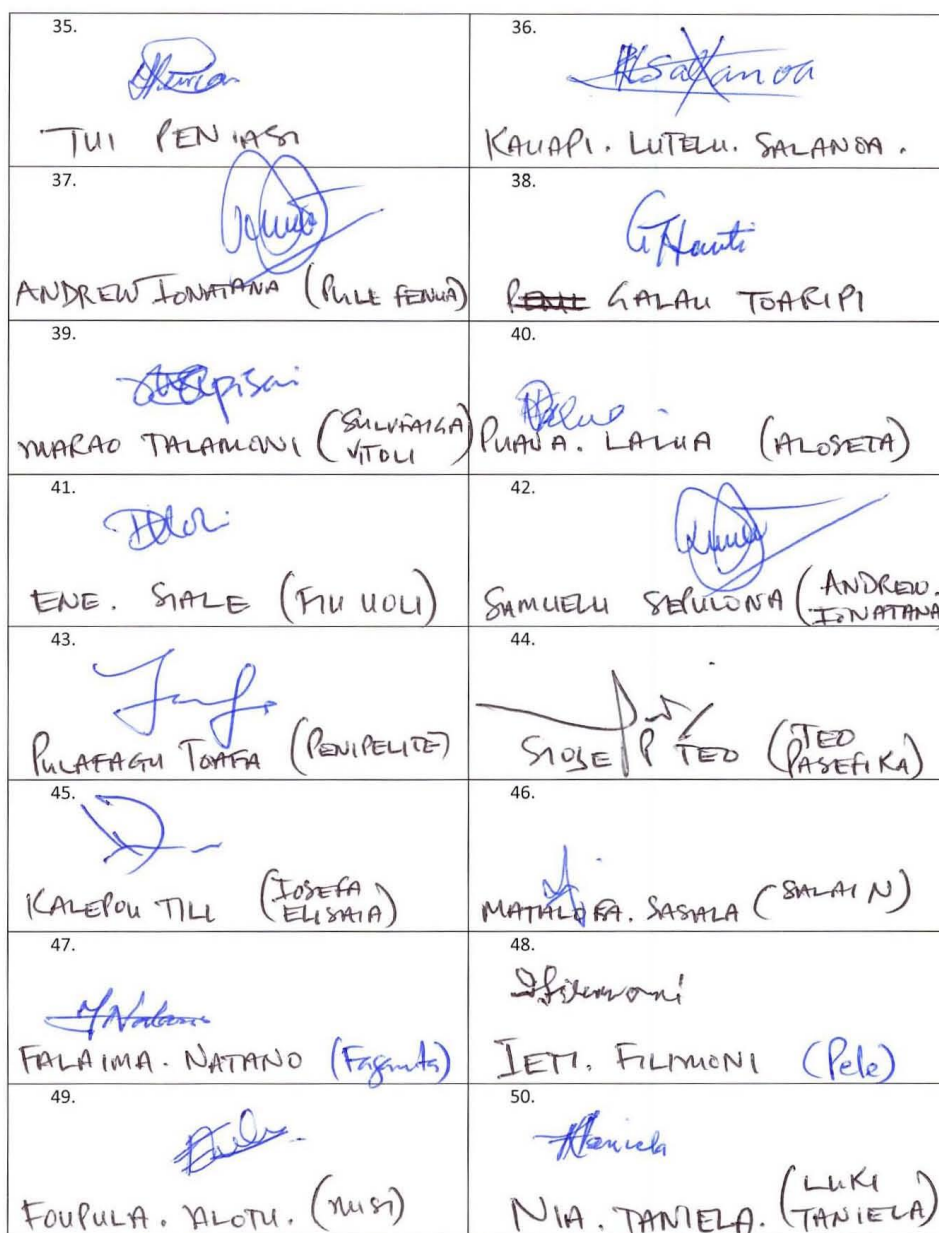 35.
TUI PENIASI
36.
Salanoa
KAUAPI. LUTELU. SALANOA.
37.
ANDREW IONATANA (PULE FENUA)
38.
GALAU TOARIPI
39.
MARAO TALAMONI (SULUFAIGA VITOLI)
40.
PUAVA. LAIUA (ALOSETA)
41.
ENE. SIALE (FIU UOLI)
42.
SAMUELU SEPULONA (ANDREW. IONATANA
43.
PULAFAGU TOAFA (PENIPELITE)
44.
SIOSE P TEO (TEO PASEFIKA)
45.
KALEPOU TILI (IOSEFA ELISAIA)
46.
MATALOFA. SASALA (SALAI N)
47.
FALAIMA. NATANO
48.
Filimoni
IETI. FILIMONI (Pele)
49.
FOUPULA. ALOTU. (NUSI)
50.
Taniela
NIA. TANIELA. (LUKI TANIELA)